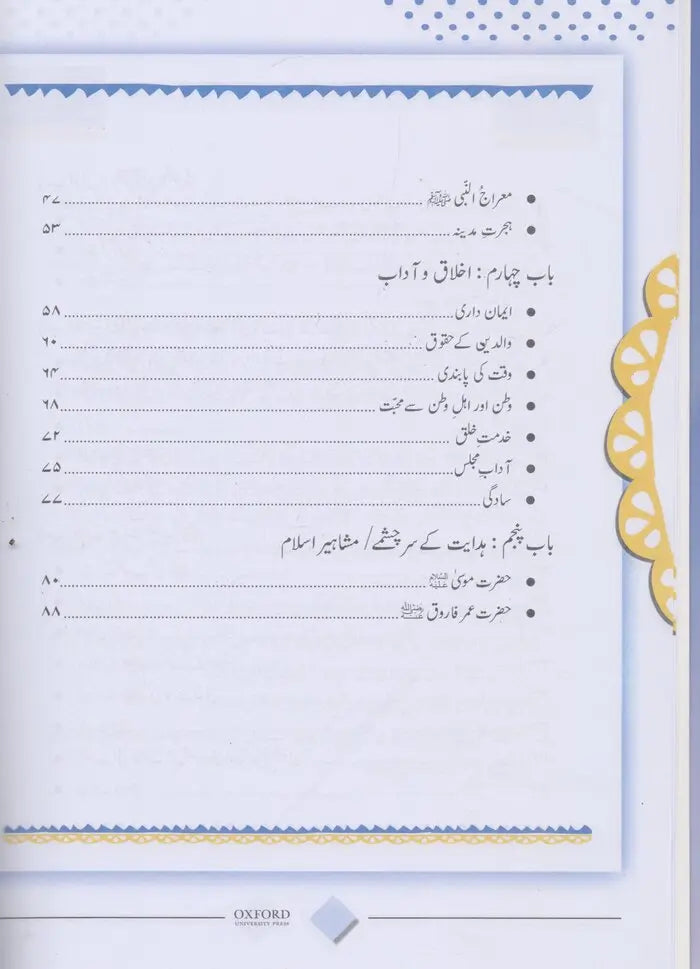 ● معراجُ النّبی ﷺ ........ ۴۷
● ہجرتِ مدینہ ........ ۵۳
باب چہارم : اخلاق و آداب
● ایمان داری ........ ۵۸
● والدین کے حقوق ........ ۶۰
● وقت کی پابندی ........ ۶۴
● وطن اور اہلِ وطن سے محبّت ........ ۶۸
● خدمتِ خلق ........ ۷۲
● آدابِ مجلس ........ ۷۵
● سادگی ........ ۷۷
باب پنجم : ہدایت کے سرچشمے / مشاہیر اسلام
● حضرت موسیٰ علیہ السلام ........ ۸۰
● حضرت عمر فاروق رضی اللہ عنہ ........ ۸۸
OXFORD
UNIVERSITY PRESS